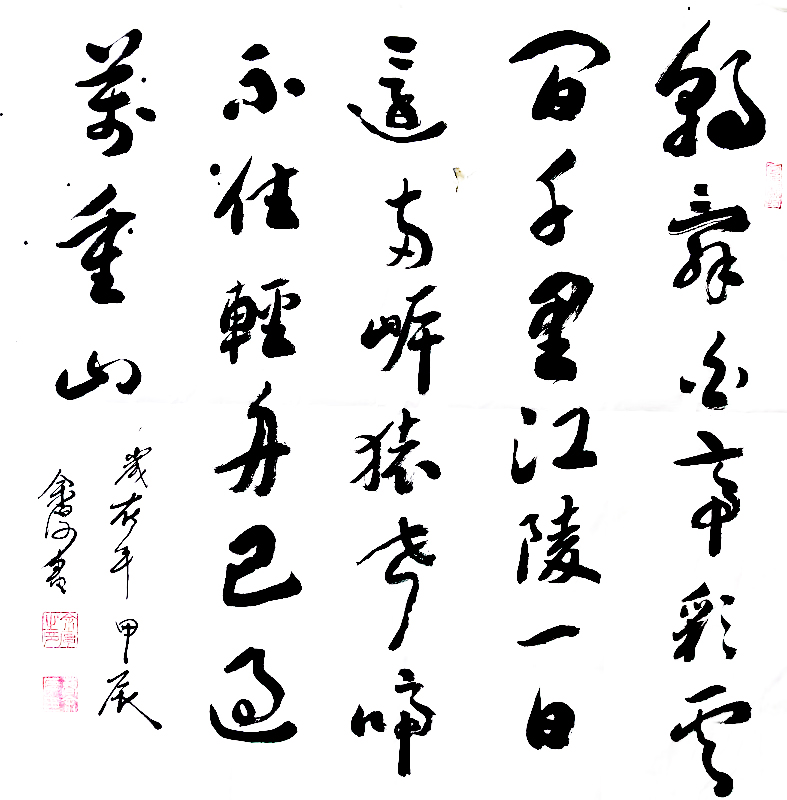 朝辭白帝彩雲
間千里江陵一日
還兩岸猿聲啼
不住輕舟已過
萬重山
歲在年甲辰
書